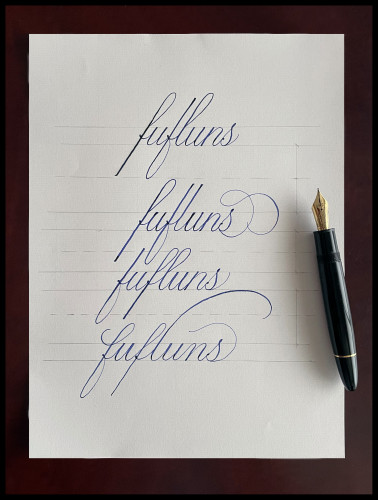 fufluns
fufluns
fufluns
fufluns